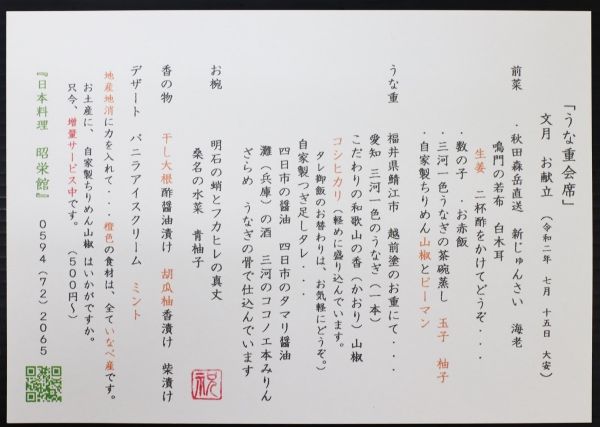 「うな重会席」
文月 お献立 (令和二年 七月 十五日 大安)
前菜 ・秋田森岳直送 新じゅんさい 海老
鳴門の若布 白木耳
生姜 二杯酢をかけてどうぞ・・・
・数の子 ・お赤飯
・三河一色うなぎの茶碗蒸し 玉子 柚子
・自家製ちりめん山椒とピーマン
うな重 福井県鯖江市 越前塗のお重にて・・・
愛知 三河一色のうなぎ(一本)
こだわりの和歌山の香(かおり)山椒
コシヒカリ(軽めに盛り込んでいます。
タレ御飯のお替わりは、お気軽にどうぞ。)
自家製つぎ足しタレ・・・
四日市の醤油 四日市のタマリ醤油
灘(兵庫)の酒 三河のココノエ本みりん
ざらめ うなぎの骨で仕込んでいます
お椀 明石の蛸とフカヒレの真丈
桑名の水菜 青柚子
香の物 干し大根酢醤油漬け 胡瓜柚香漬け 柴漬け
デザート バニラアイスクリーム ミント
地産地消に力を入れて・・・橙色の食材は、全ていなべ産です。
お土産に、自家製ちりめん山椒 はいかがですか。
只今、増量サービス中です。 (500円~)
『日本料理 昭栄館』 0594(72)2065
祝